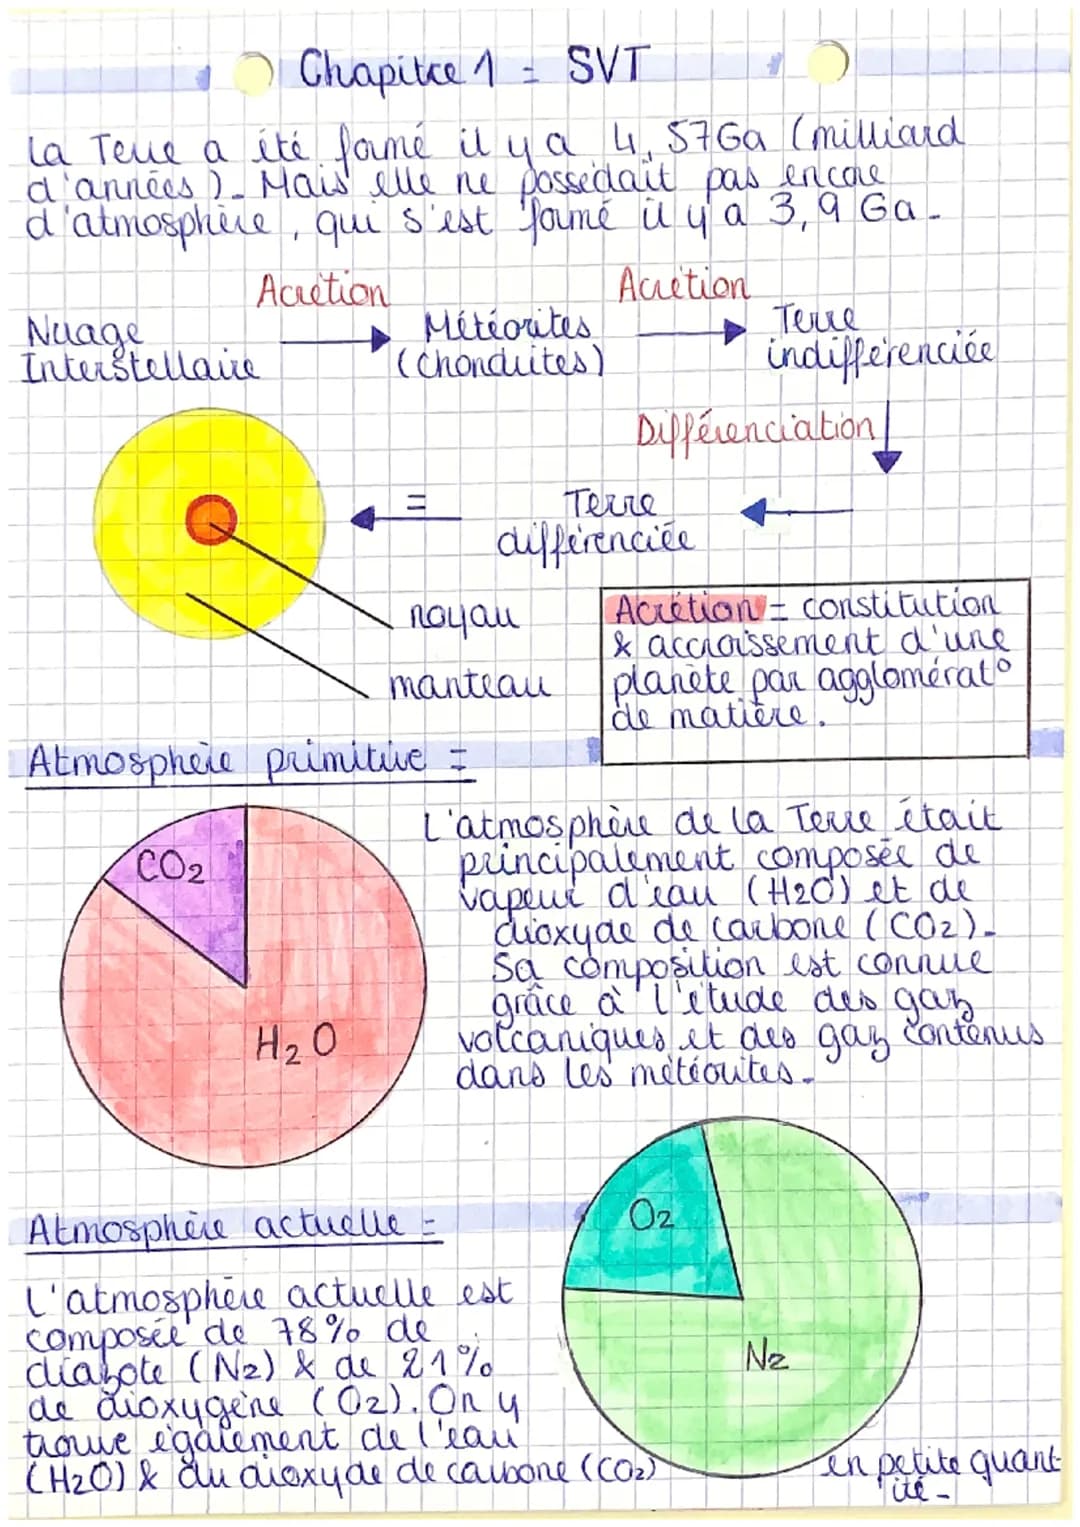 Chapitre 1 = SVT
La Terre a été formé il y a 4,57Ga (milliard
d'années). Mais elle ne possédait pas encore
d'atmosphère, qui s'est formé il y a 3,9 Ga.
Acrétion
Acrétion
Nuage
Interstellaire
Météorites
(Chondrites)
Terre
indifférenciée
Différenciation
=
Terre
différenciée
noyau
manteau
Acrétion = constitution
& accroissement d'une
planète par agglomérat°
de matière.
Atmosphère primitive =
CO2
H2O
L'atmosphère de la Terre était
principalement composée de
vapeur d'eau (H2O) et de
dioxyde de carbone (CO2).
Sa composition est connue
grâce à l'étude des gaz
volcaniques et des gaz contenus
dans les météorites.
Atmosphère actuelle =
O2
N2
L'atmosphère actuelle est
composée de 78% de
diazote (N2) & de 21%
de dioxygène (O2). On y
trouve également de l'eau
(H2O) & du dioxyde de carbone (CO2) en petite quant
ité.